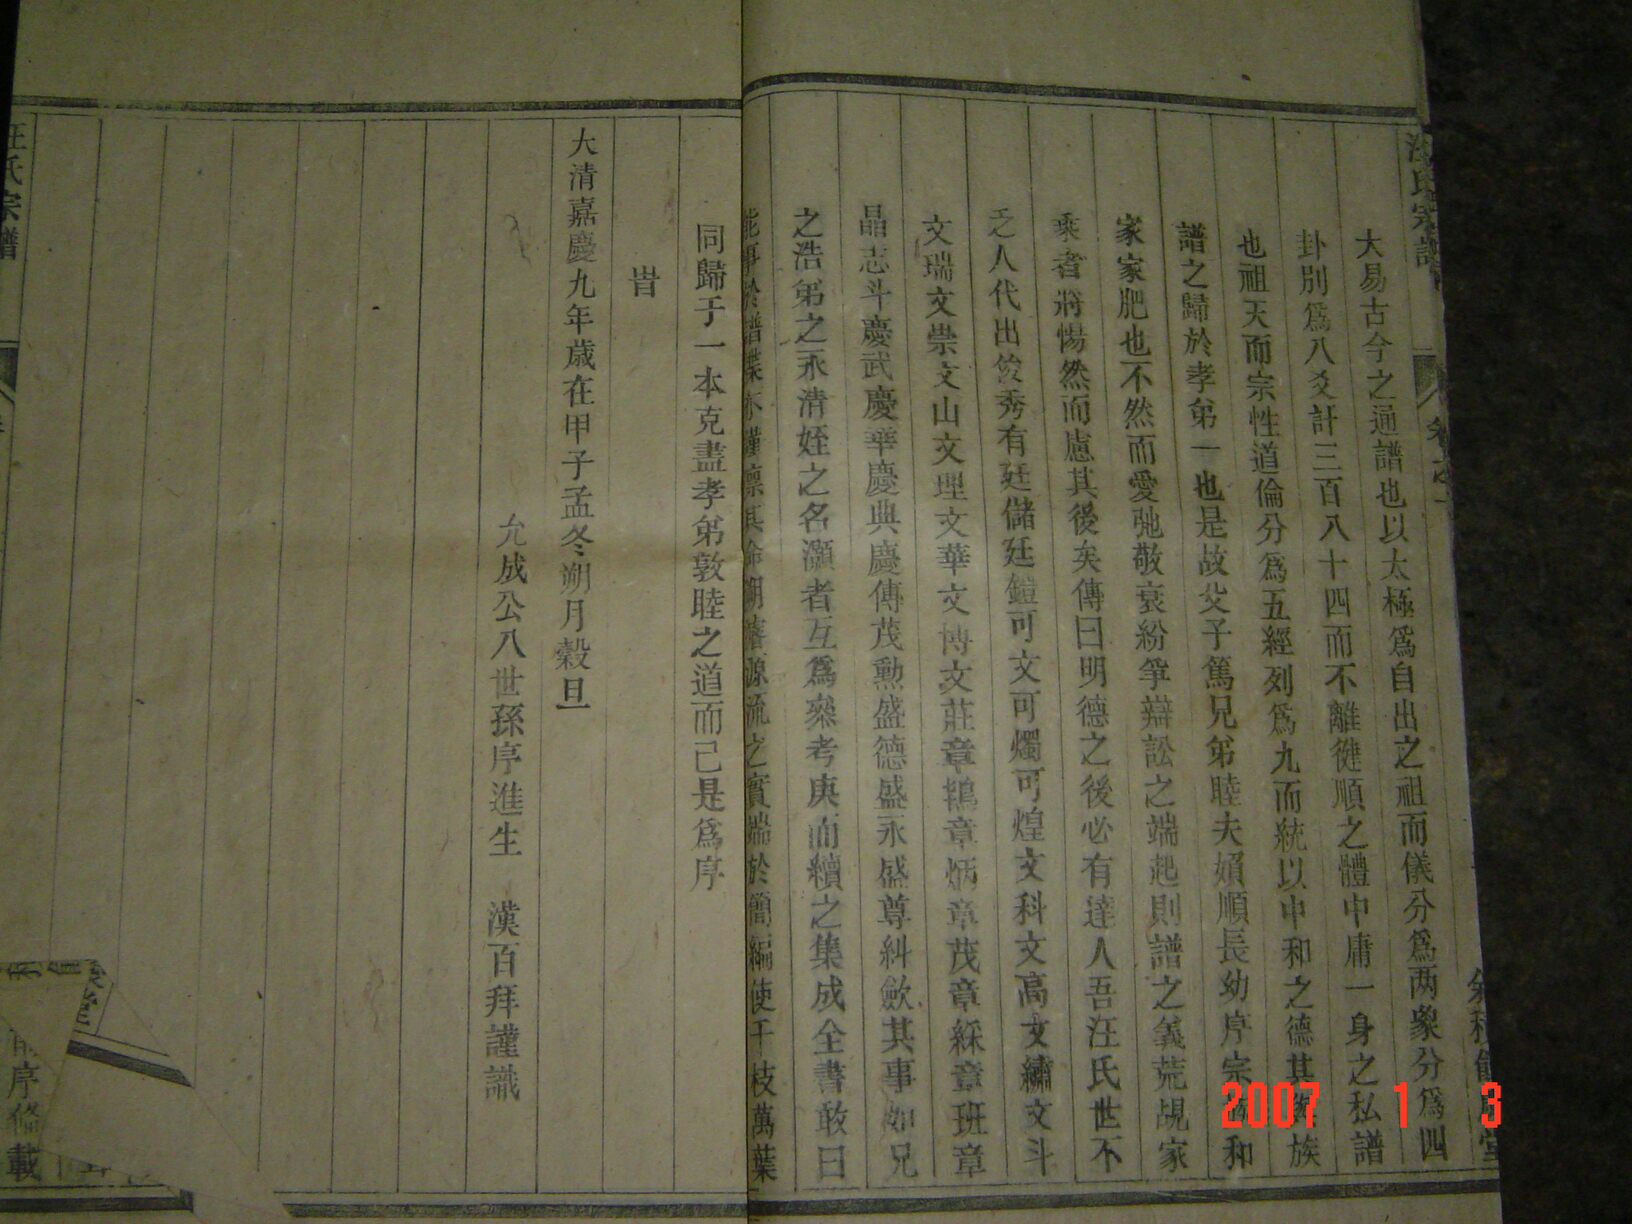 汪氏宗譜
大易古今之通譜也以太極爲自出之祖而儀分爲两象分爲四
卦別爲八爻計三百八十四而不離健順之體中庸一身之私譜
也祖天而宗性道倫分爲五經列爲九而統以中和之德其族
譜之歸於孝弟一也是故父子篤兄弟睦夫婦順長幼序宗和
家家肥也不然而愛弛敬衰紛爭辯訟之端起則譜之義荒覘家
乘者將惕然而慮其後矣傳曰明德之後必有達人吾汪氏世不
乏人代出笯秀有廷儲廷鎧可文可燭可煌文科文高文繡文斗
文瑞文崇文山文理文華文博文莊章鵷章炳章茂章綵章班章
晶志斗慶武慶華慶典慶傳茂勲盛德盛永盛尊糾歛其事如兄
之浩弟之永清姪之名灝者互爲叅考庚而續之集成全書敢曰
能事於譜牒亦謹凛其命溯著源流之實端於簡編使千枝萬葉
同歸于一本克盡孝弟敦睦之道而已是爲序
旹
大清嘉慶九年歲在甲子孟冬朔月穀旦
允成公八世孫序進生 漢百拜謹識
汪氏宗譜
序條載
2007 1 3